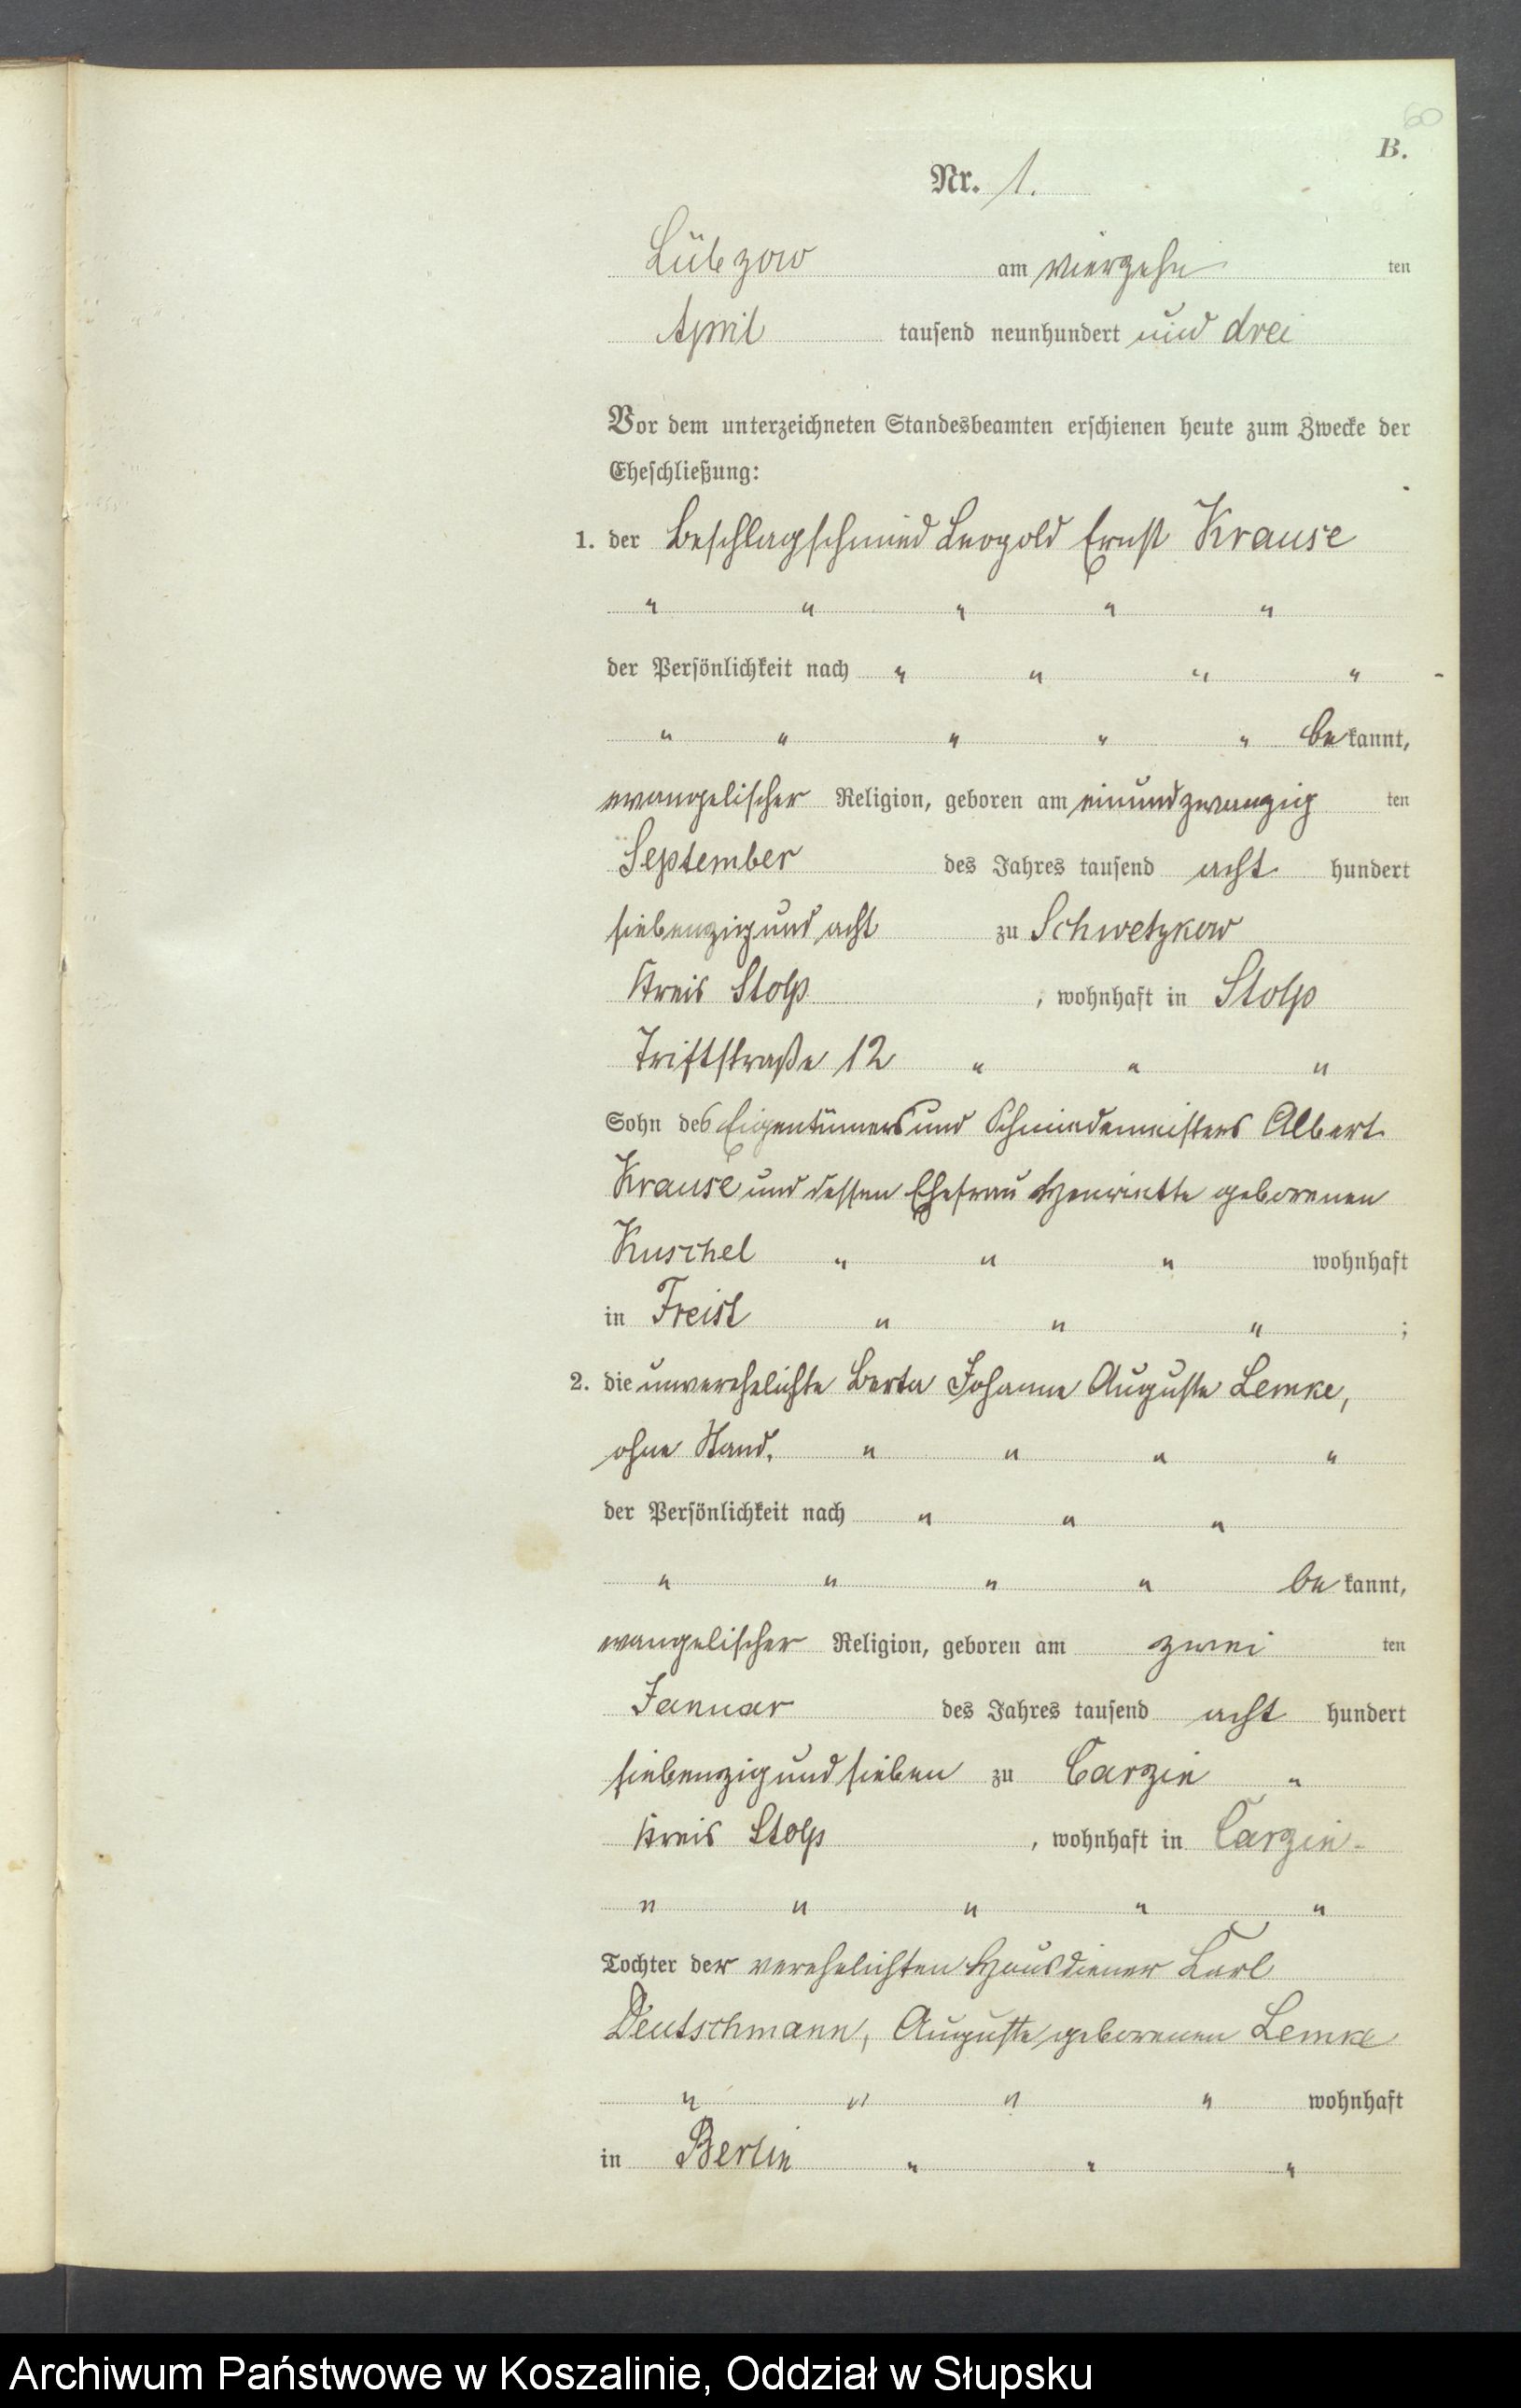 60
B.
Nr. 1.
Lübzow am vierzehn ten
April tausend neunhundert und drei
Vor dem unterzeichneten Standesbeamten erschienen heute zum Zwecke der
Eheschließung:
1. der Beschlagschmied Leopold Ernst Krause
" " " " "
der Persönlichkeit nach " " " "
" " " " " be kannt,
evangelischer Religion, geboren am einundzwanzig ten
September des Jahres tausend acht hundert
siebenzig und acht zu Schwetzkow
Kreis Stolp , wohnhaft in Stolp
Triftstraße 12 " " "
Sohn des Eigentümers und Schmiedemeisters Albert
Krause und dessen Ehefrau Henriette geborenen
Kuschel " " " wohnhaft
in Freist " " " ;
2. die unverehelichte Berta Johanne Auguste Lemke,
ohne Stand. " " " "
der Persönlichkeit nach " " "
" " " " be kannt,
evangelischer Religion, geboren am zwei ten
Januar des Jahres tausend acht hundert
siebenzig und sieben zu Carzin "
Kreis Stolp , wohnhaft in Carzin
" " " " "
Tochter der verehelichten Hausdiener Karl
Deutschmann, Auguste geborenen Lemke
" " " " wohnhaft
in Berlin " " "
Archiwum Państwowe w Koszalinie, Oddział w Słupsku